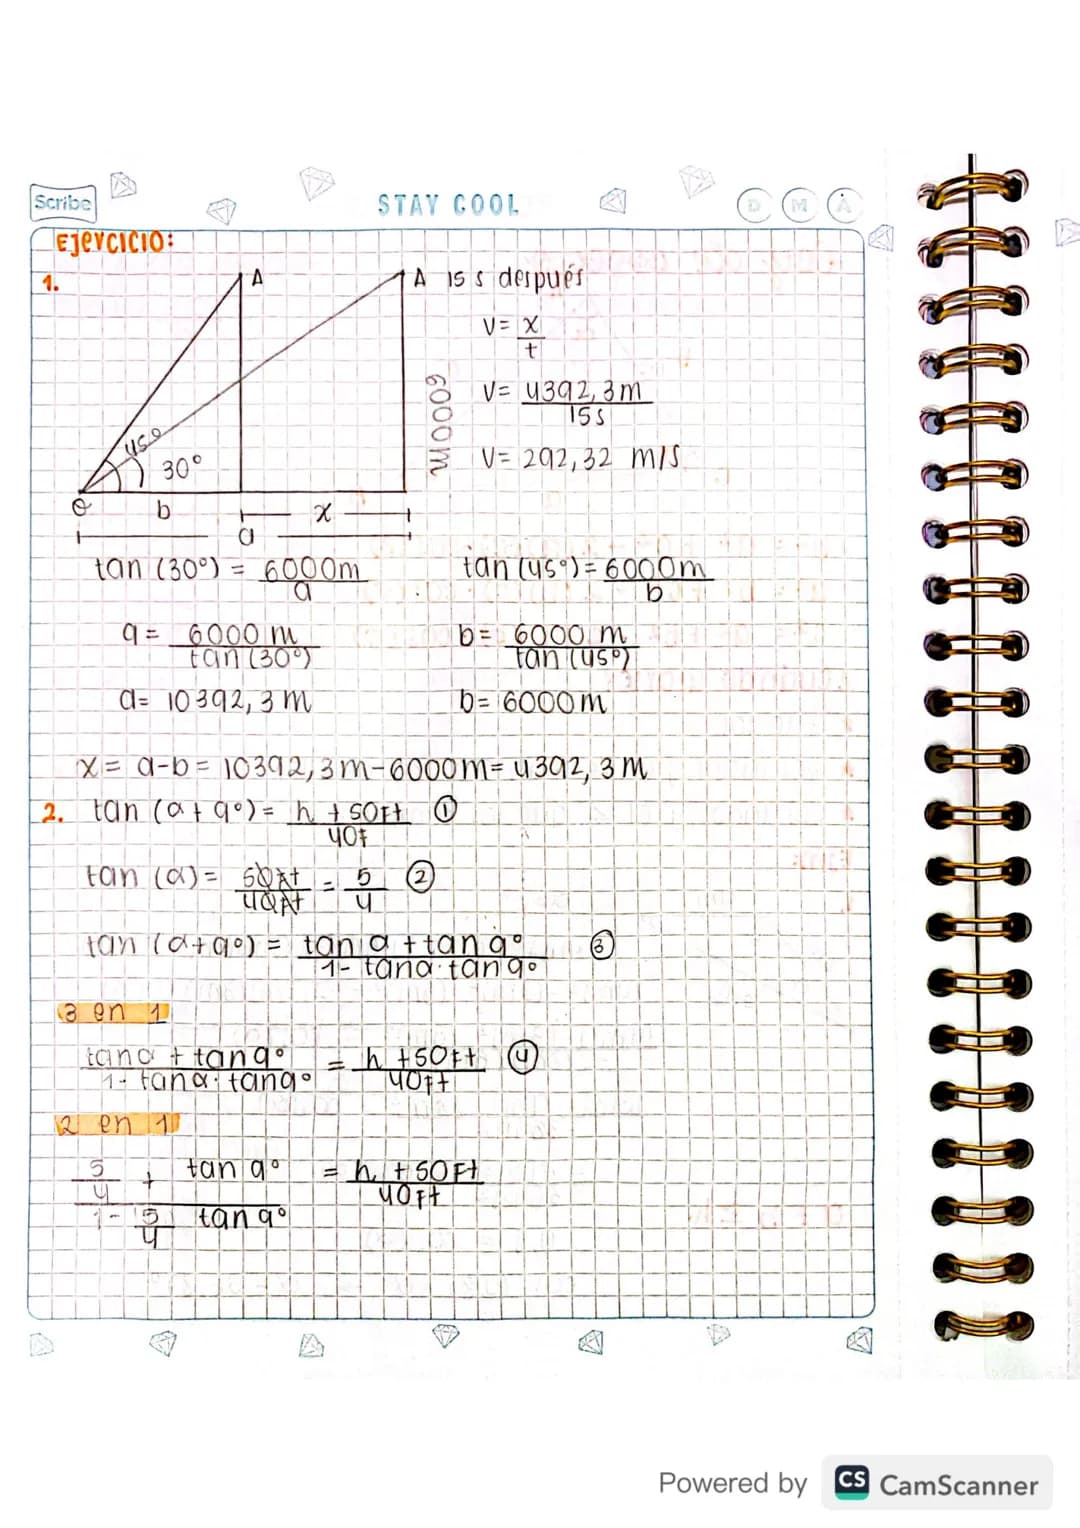 Scribe
STAY COOL
D M A
Ejercicio:
1.
A
A 15 s después
V = x / t
V = 4392,3m / 15s
V = 292,32 m/s
6000m
45°
30°
O
b
x
a
tan (30°) = 6000m / a
tan (45°) = 6000m / b
a = 6000 m / tan (30°)
b = 6000 m / tan (45°)
a = 10392,3 m
b = 6000m
x = a-b = 10392,3m-6000m = 4392,3m
2. tan (α + 9°) = h + 50ft / 40f ①
tan (α) = 50ft / 40ft = 5/4 ②
tan (α+9°) = tan α + tan 9° / 1- tanα · tan 9° ③
3 en 1
tanα + tan9° / 1- tanα · tan9° = h + 50ft / 40ft ④
2 en 1
5/4 + tan 9° / 1 - 5/4 tan 9° = h + 50Ft / 40ft
Powered by CS CamScanner